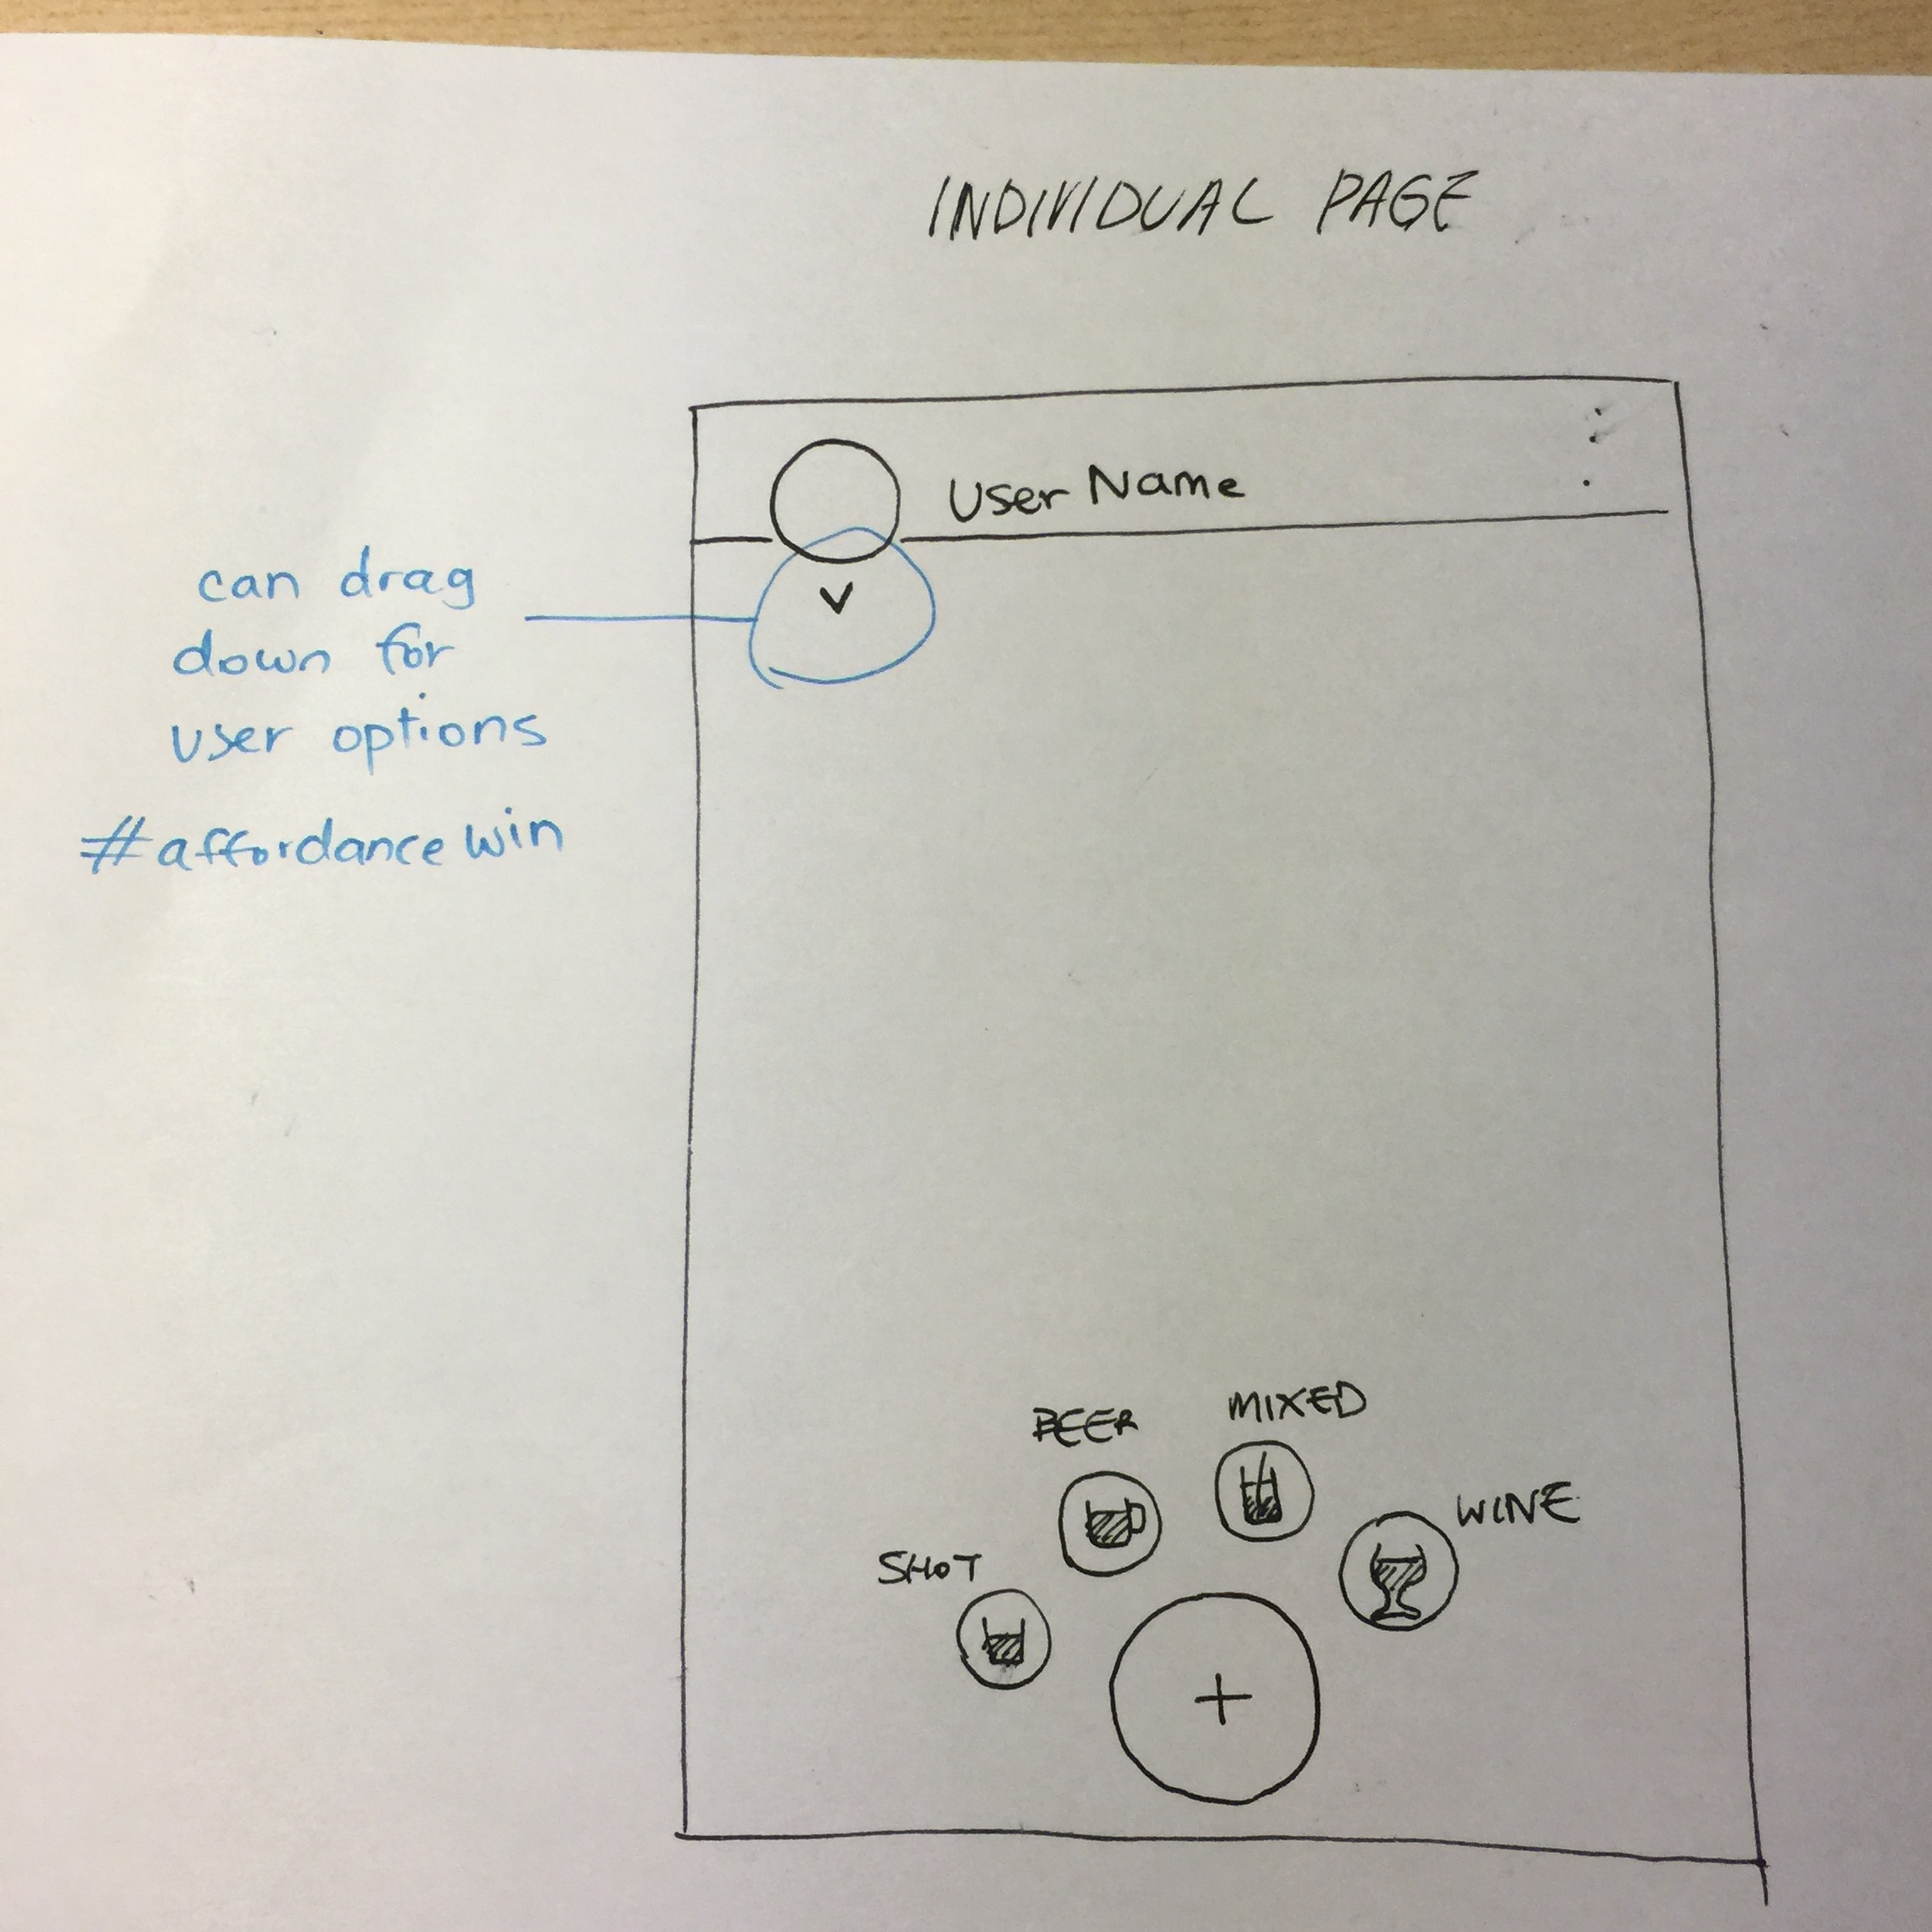 INDIVIDUAL PAGE
User Name
can drag
down for
user options
#affordance win
BEER
MIXED
WINE
SHOT
+